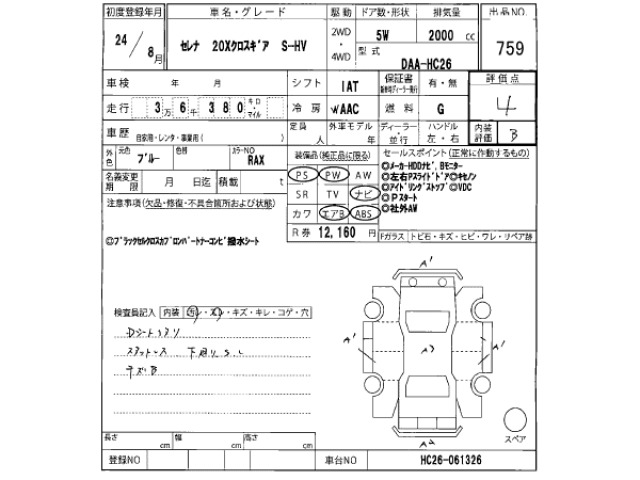 初度登録年月 車名・グレード 駆動 ドア数・形状 排気量 出品NO.
24/8月 セレナ 20Xクロスギア S-HV 2WD・4WD 5W 2000 cc 759
型式 DAA-HC26
車検 年 月 シフト IAT 保証書 有・無 評価点
走行 3万6千380キロ マイル 冷房 WAAC 燃料 G 4
車歴 自家用・レンタ・事業用( ) 定員 人 外車モデル 年 ディーラー・並行 ハンドル 左・右 内装評価 B
外色 元色 ブルー 色替 カラーNO RAX
装備品(純正品に限る) セールスポイント(正常に作動するもの)
名義変更期限 月 日迄 積載 t
PS PW AW
SR TV ナビ
カワ エアB ABS
R券 12,160 円
◎メーカーHDDナビ、Bモニター
◎左右Pスライドドア◎キセノン
◎アイドリングストップ◎VDC
◎Pスタート
◎社外AW
注意事項(欠品・修復・不具合箇所および状態)
◎ブラックセルクロスカブロンパートナーコンビ撥水シート
Fガラス トビ石・キズ・ヒビ・ワレ・リペア跡
検査員記入 内装 ・スレ・キズ・キレ・コゲ・穴
A'
A'
A'
スペア
長さ cm 幅 cm 高さ cm
登録NO 車台NO HC26-061326